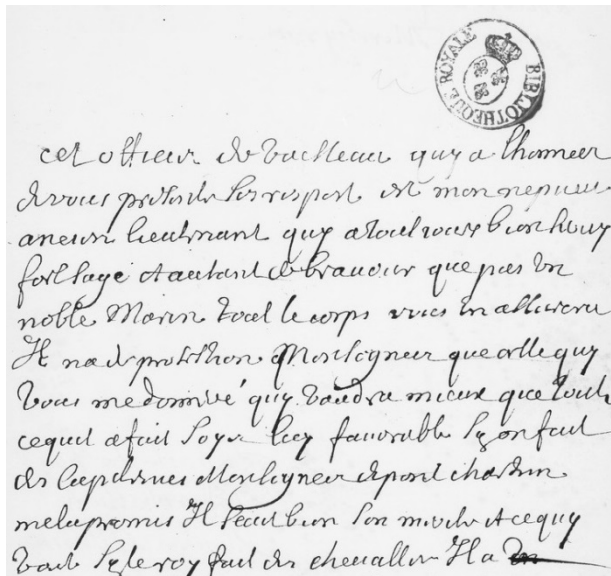 BIBLIOTHEQUE ROYALE
cet officier de vaisseau quy a lhonneur
de vous presenter est mon nepveu
ancien lieutenant quy a tousiours bien
fort sage et autant de bravoure que pas un
noble Marin tout le corps vous en assurera
Il na de protection Monseigneur que celle quy
vous me quy vaudra mieux que tout
ce quil a fait soyes luy favorable sy on fait
des Capitaines Monseigneur de pontchartrin
me la promis Il scait bien son et ce quy
vaut sy le roy fait des chevallier Il a